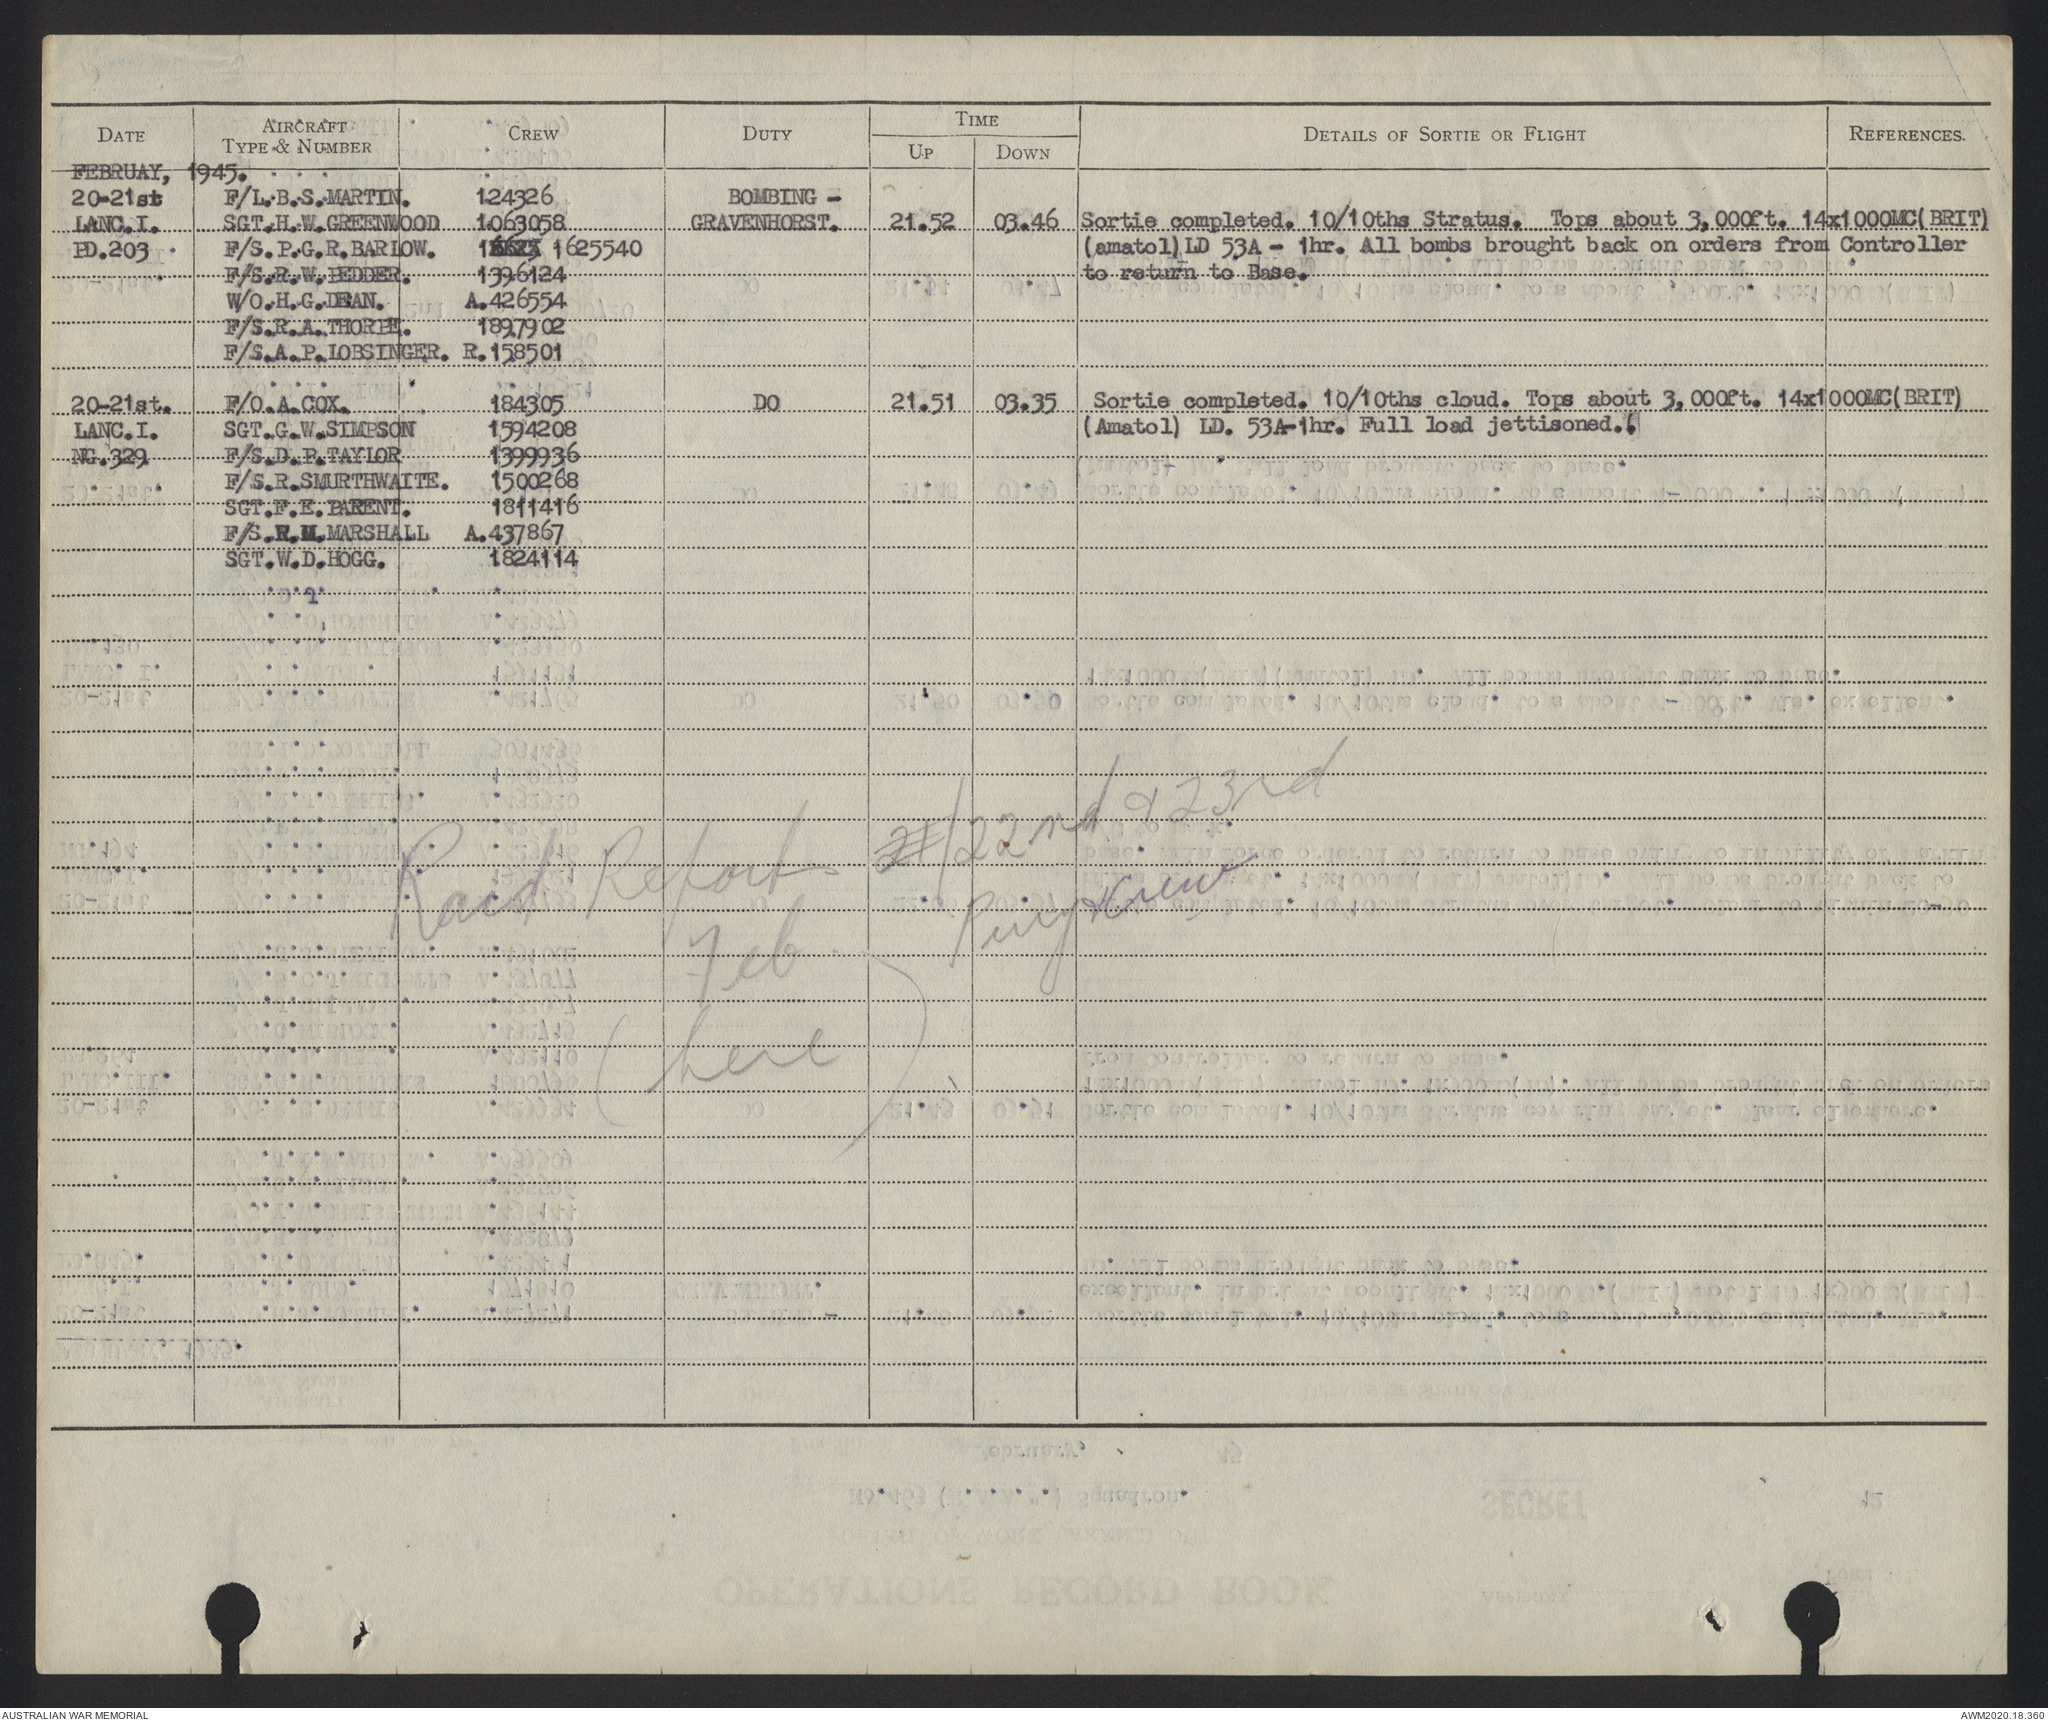 DATE AIRCRAFT TYPE & NUMBER CREW DUTY TIME UP DOWN DETAILS OF SORTIE OR FLIGHT REFERENCES.
FEBRUAY, 1945.
20-21st F/L.B.S.MARTIN. 124326 BOMBING -
LANC.I. SGT.H.W.GREENWOOD 1063058 GRAVENHORST. 21.52 03.46 Sortie completed. 10/10ths Stratus. Tops about 3,000ft. 14x1000MC(BRIT)
PD.203 F/S.P.G.R.BARLOW. 1625540 (amatol)LD 53A - 1hr. All bombs brought back on orders from Controller
F/S.R.W.PEDDER. 1396124 to return to Base.
W/O.H.G.DEAN. A.426554
F/S.R.A.THORPE. 1897902
F/S.A.P.LOBSINGER. R.158501
20-21st. F/O.A.COX. 184305 DO 21.51 03.35 Sortie completed. 10/10ths cloud. Tops about 3,000ft. 14x1000MC(BRIT)
LANC.I. SGT.G.W.SIMPSON 1594208 (Amatol) LD. 53A-1hr. Full load jettisoned.
NG.329 F/S.D.P.TAYLOR 1399936
F/S.R.SMURTHWAITE. 1500268
SGT.F.E.PARENT. 1811416
F/S.R.M.MARSHALL A.437867
SGT.W.D.HOGG. 1824114
Raid Reports 22nd & 23rd
Feb
(here)
AUSTRALIAN WAR MEMORIAL AWM2020.18.360